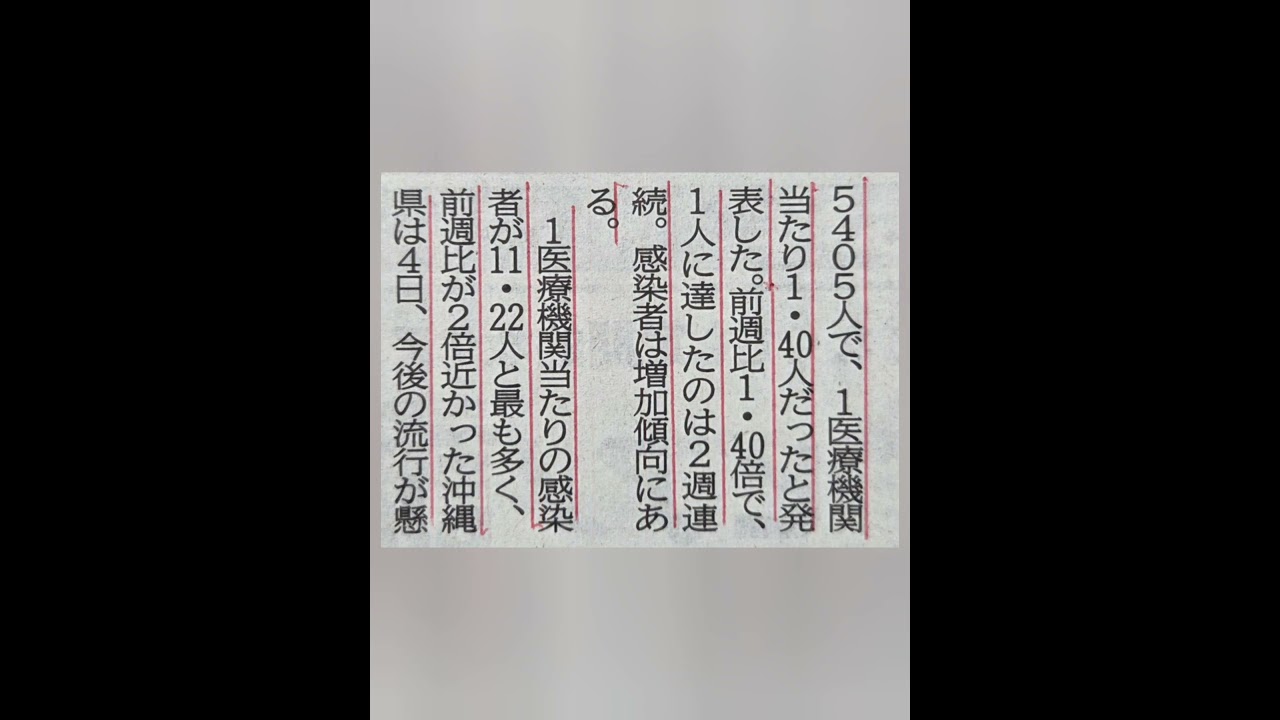 5405人で、1医療機関
当たり1・40人だったと発
表した。前週比1・40倍で、
1人に達したのは2週連
続。感染者は増加傾向にあ
る。
1医療機関当たりの感染
者が11・22人と最も多く、
前週比が2倍近かった沖縄
県は4日、今後の流行が懸